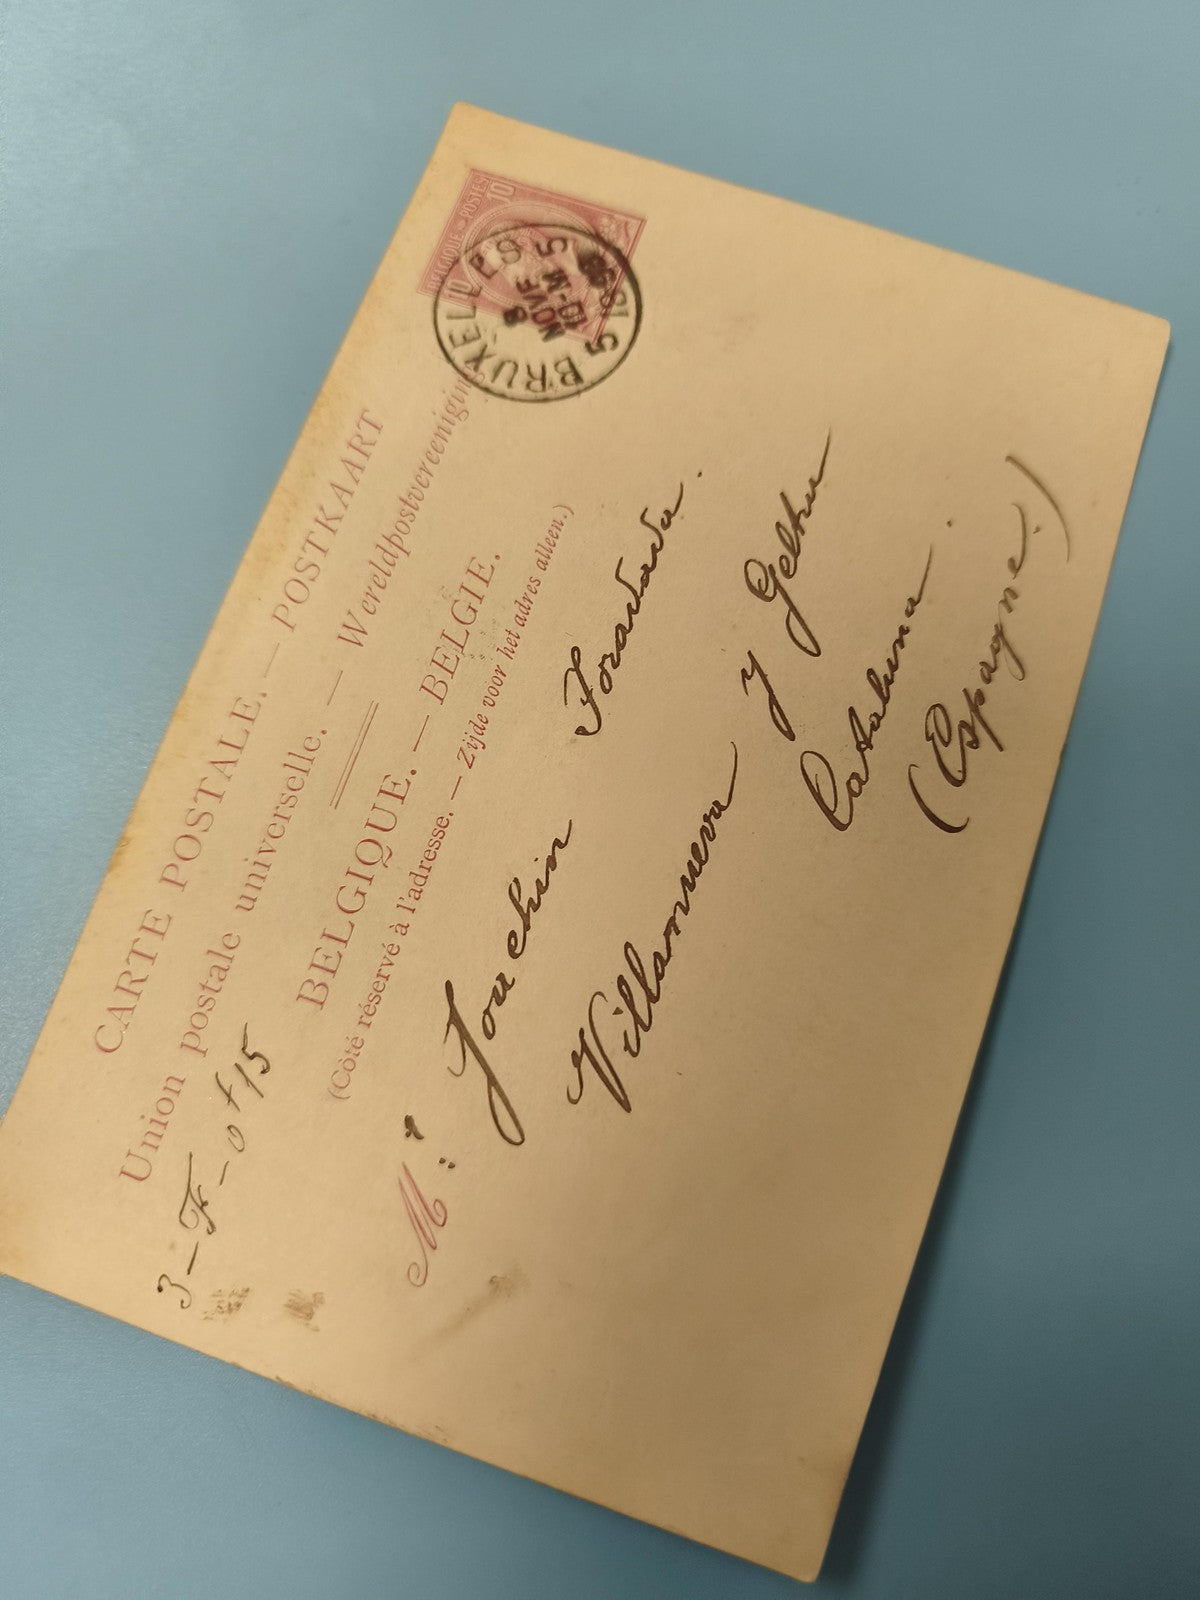 BELGIQUE POSTES 10
BRUXELLES 5
8
NOVE
10-M
5
CARTE POSTALE. — POSTKAART
Union postale universelle. — Wereldpostvereeniging
BELGIQUE. — BELGIE.
(Côté réservé à l'adresse. — Zijde voor het adres alleen.)
3-F-of 15
M: Jouchin Foradada.
Villanueva y Geltru
Cataluna.
(Espagne.)